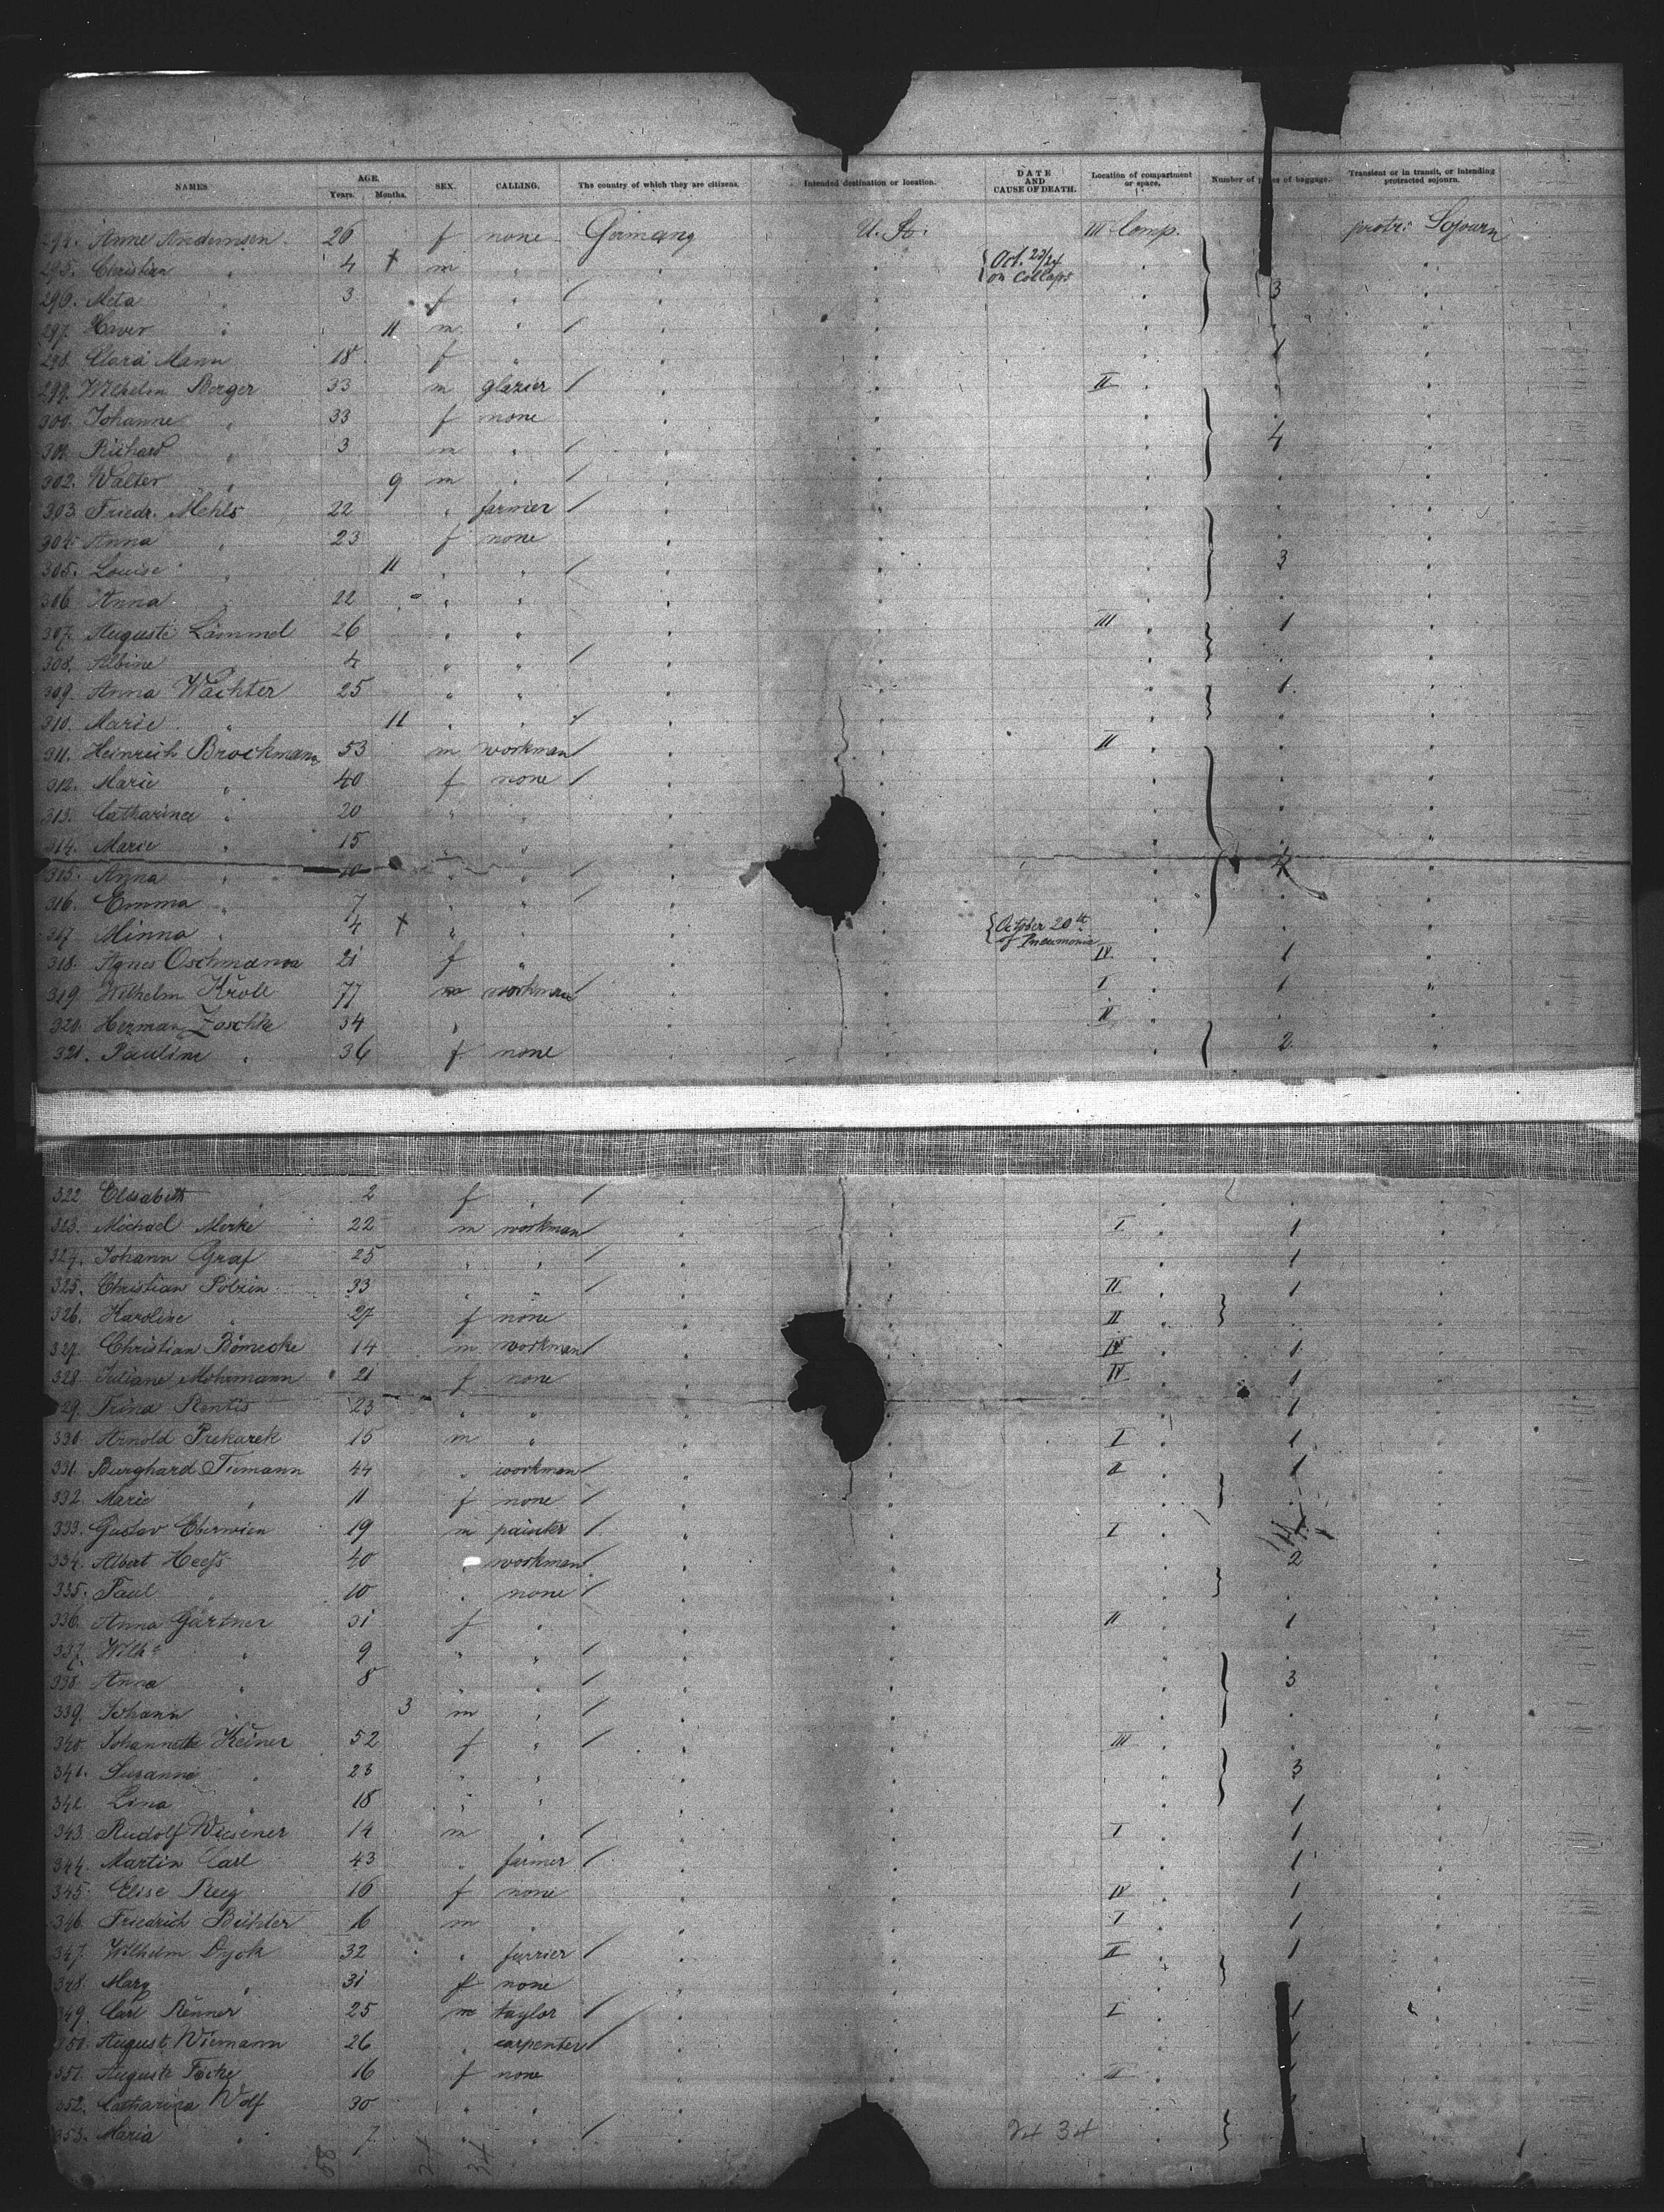 NAMES. AGE. Years. Months. SEX. CALLING. The country of which they are citizens. Intended destination or location. DATE AND CAUSE OF DEATH. Location of compartment or space. Number of pieces of baggage. Transient or in transit, or intending protracted sojourn.
294. Anne Andernsen 26 f none Germany U. St. III Comp. protr: Sojourn
295. Christian " 4 + m " " " { Oct. 23/24 on Collaps " "
296. Meta " 3 f " / " " " 3 "
297. " 11 m " / " " " "
298. Clara Mann 18 f " " " " 1 "
299. Wilhelm Berger 33 m glazier / " " II " "
300. Johanne " 33 f none " " " "
301. Richard " 3 m " / " " " 4 "
302. Walter " 9 m " / " " " "
303. Friedr. Mehls 22 " farmer / " " " "
304. Anna " 23 f none " " " "
305. Louise " 11 " " / " " " 3 "
306. Anna " 22 " " " " " "
307. Auguste Lämmel 26 " " " " III " 1 "
308. Albine " 4 " " / " " " "
309. Anna Wächter 25 " " " " " 1 "
310. Marie " 11 " " / " " " "
311. Heinrich Brockmann 53 m workman / " " II " "
312. Marie " 40 f none / " " " "
313. Catharina " 20 " " " " " "
314. Marie " 15 " " " " " "
315. Anna " 10 " " / " " " 4 "
316. Emma " 7 " " / " " " "
317. Minna " 4 + " " " { October 20th of Pneumonia "
318. Agnes Oschmann 21 f " " " IV " 1 "
319. Wilhelm Kroll 77 m workman / " " I " 1 "
320. Herman Zoschke 34 " " " II " "
321. Pauline " 36 f none " " " 2 "
322. Elisabeth " 2 f " / " " " "
323. Michael Merke 22 m workman / " " I " 1 "
324. Johann Graf 25 " " / " " " 1 "
325. Christian Polzin 33 " " / " " II " 1 "
326. Karoline " 27 f none " " II " "
327. Christian Bömecke 14 m workman / " " IV " 1 "
328. Juliane Mohrmann 21 f none " " IV " 1 "
329. Trina Rentis 23 " " " " " 1 "
330. Arnold Prekarek 15 m " " " I " 1 "
331. Burghard Tiemann 44 " workman / " " II " 1 "
332. Marie " 11 f none / " " " "
333. Gustav Eberwien 19 m painter / " " I " "
334. Albert Heess 40 " workman / " " " 2 "
335. Paul " 10 " none / " " " "
336. Anna Gärtner 31 f " " " II " 1 "
337. Wilhe " 9 " " / " " " "
338. Anna " 8 " " / " " " 3 "
339. Johann " 3 m " / " " " "
340. Johannette Keiner 52 f " / " " III " "
341. Susanne " 23 " " " " " 3 "
342. Lina " 18 " " " " " 1 "
343. Rudolf Wiesener 14 m " / " " I " 1 "
344. Martin Carl 43 " farmer / " " " 1 "
345. Elise Reeg 16 f none " " IV " 1 "
346. Friedrich Bühler 16 m " " " I " 1 "
347. Wilhelm Dyck 32 " furrier / " " II " 1 "
348. Mary " 31 f none " " " "
349. Carl Renner 25 m taylor / " " I " 1 "
350. August Wiemann 26 " carpenter / " " " 1 "
351. Auguste Focke 16 f none " " II " 1 "
352. Catharina Wolf 30 " " " " " "
353. Maria " 7 " " / " " " "
24 34